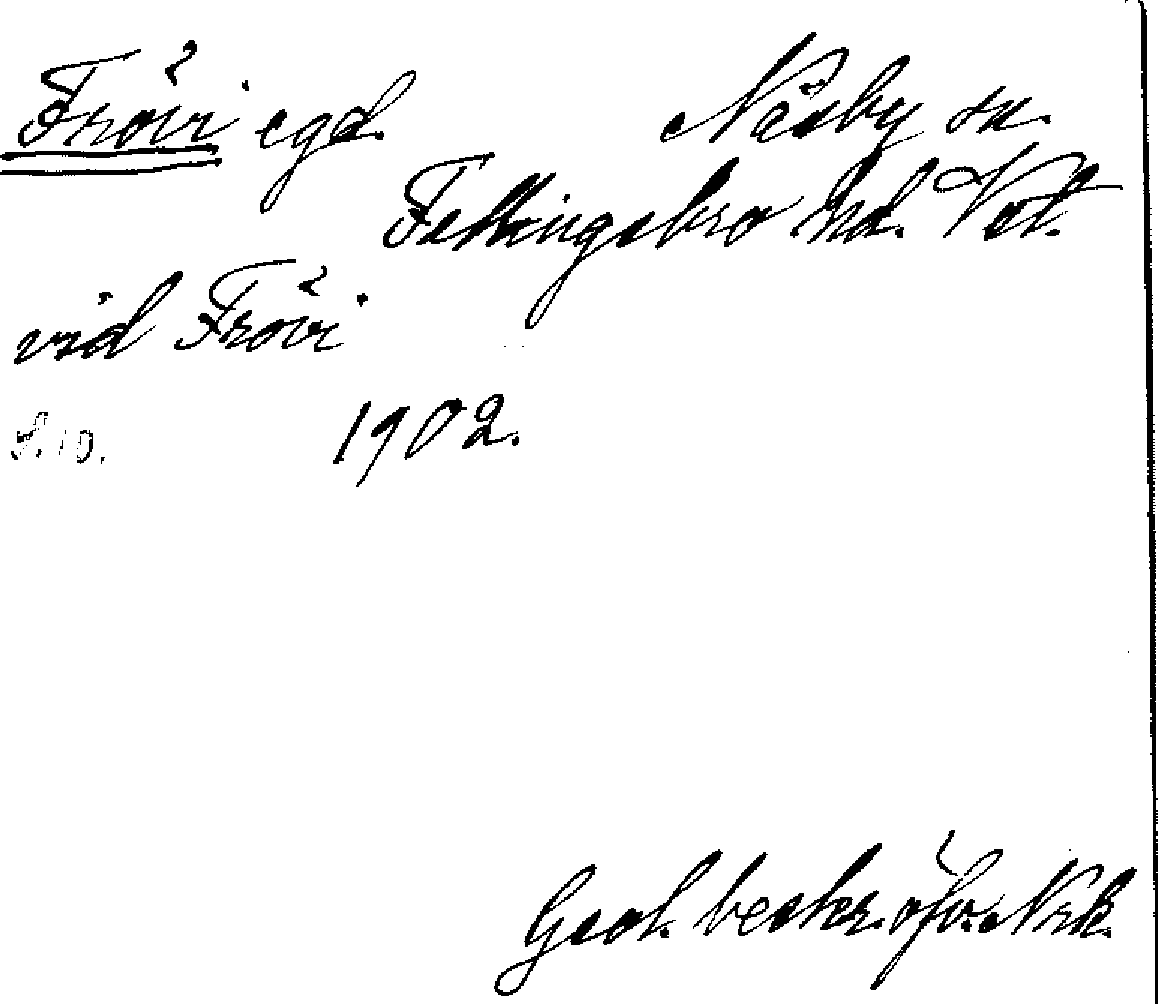 Frövi egd. Näsby sn.
Fellingsbro hd. Vstm.
vid Frövi
S. 10. 1902.
Geol. beskr. öfv. Nrk.